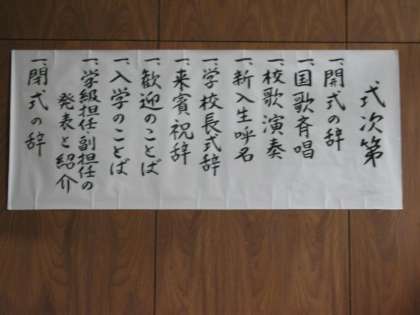 式次第
一、開式の辞
一、国歌斉唱
一、校歌演奏
一、新入生呼名
一、学校長式辞
一、来賓祝辞
一、歓迎のことば
一、入学のことば
一、学級担任・副担任の
発表と紹介
一、閉式の辞